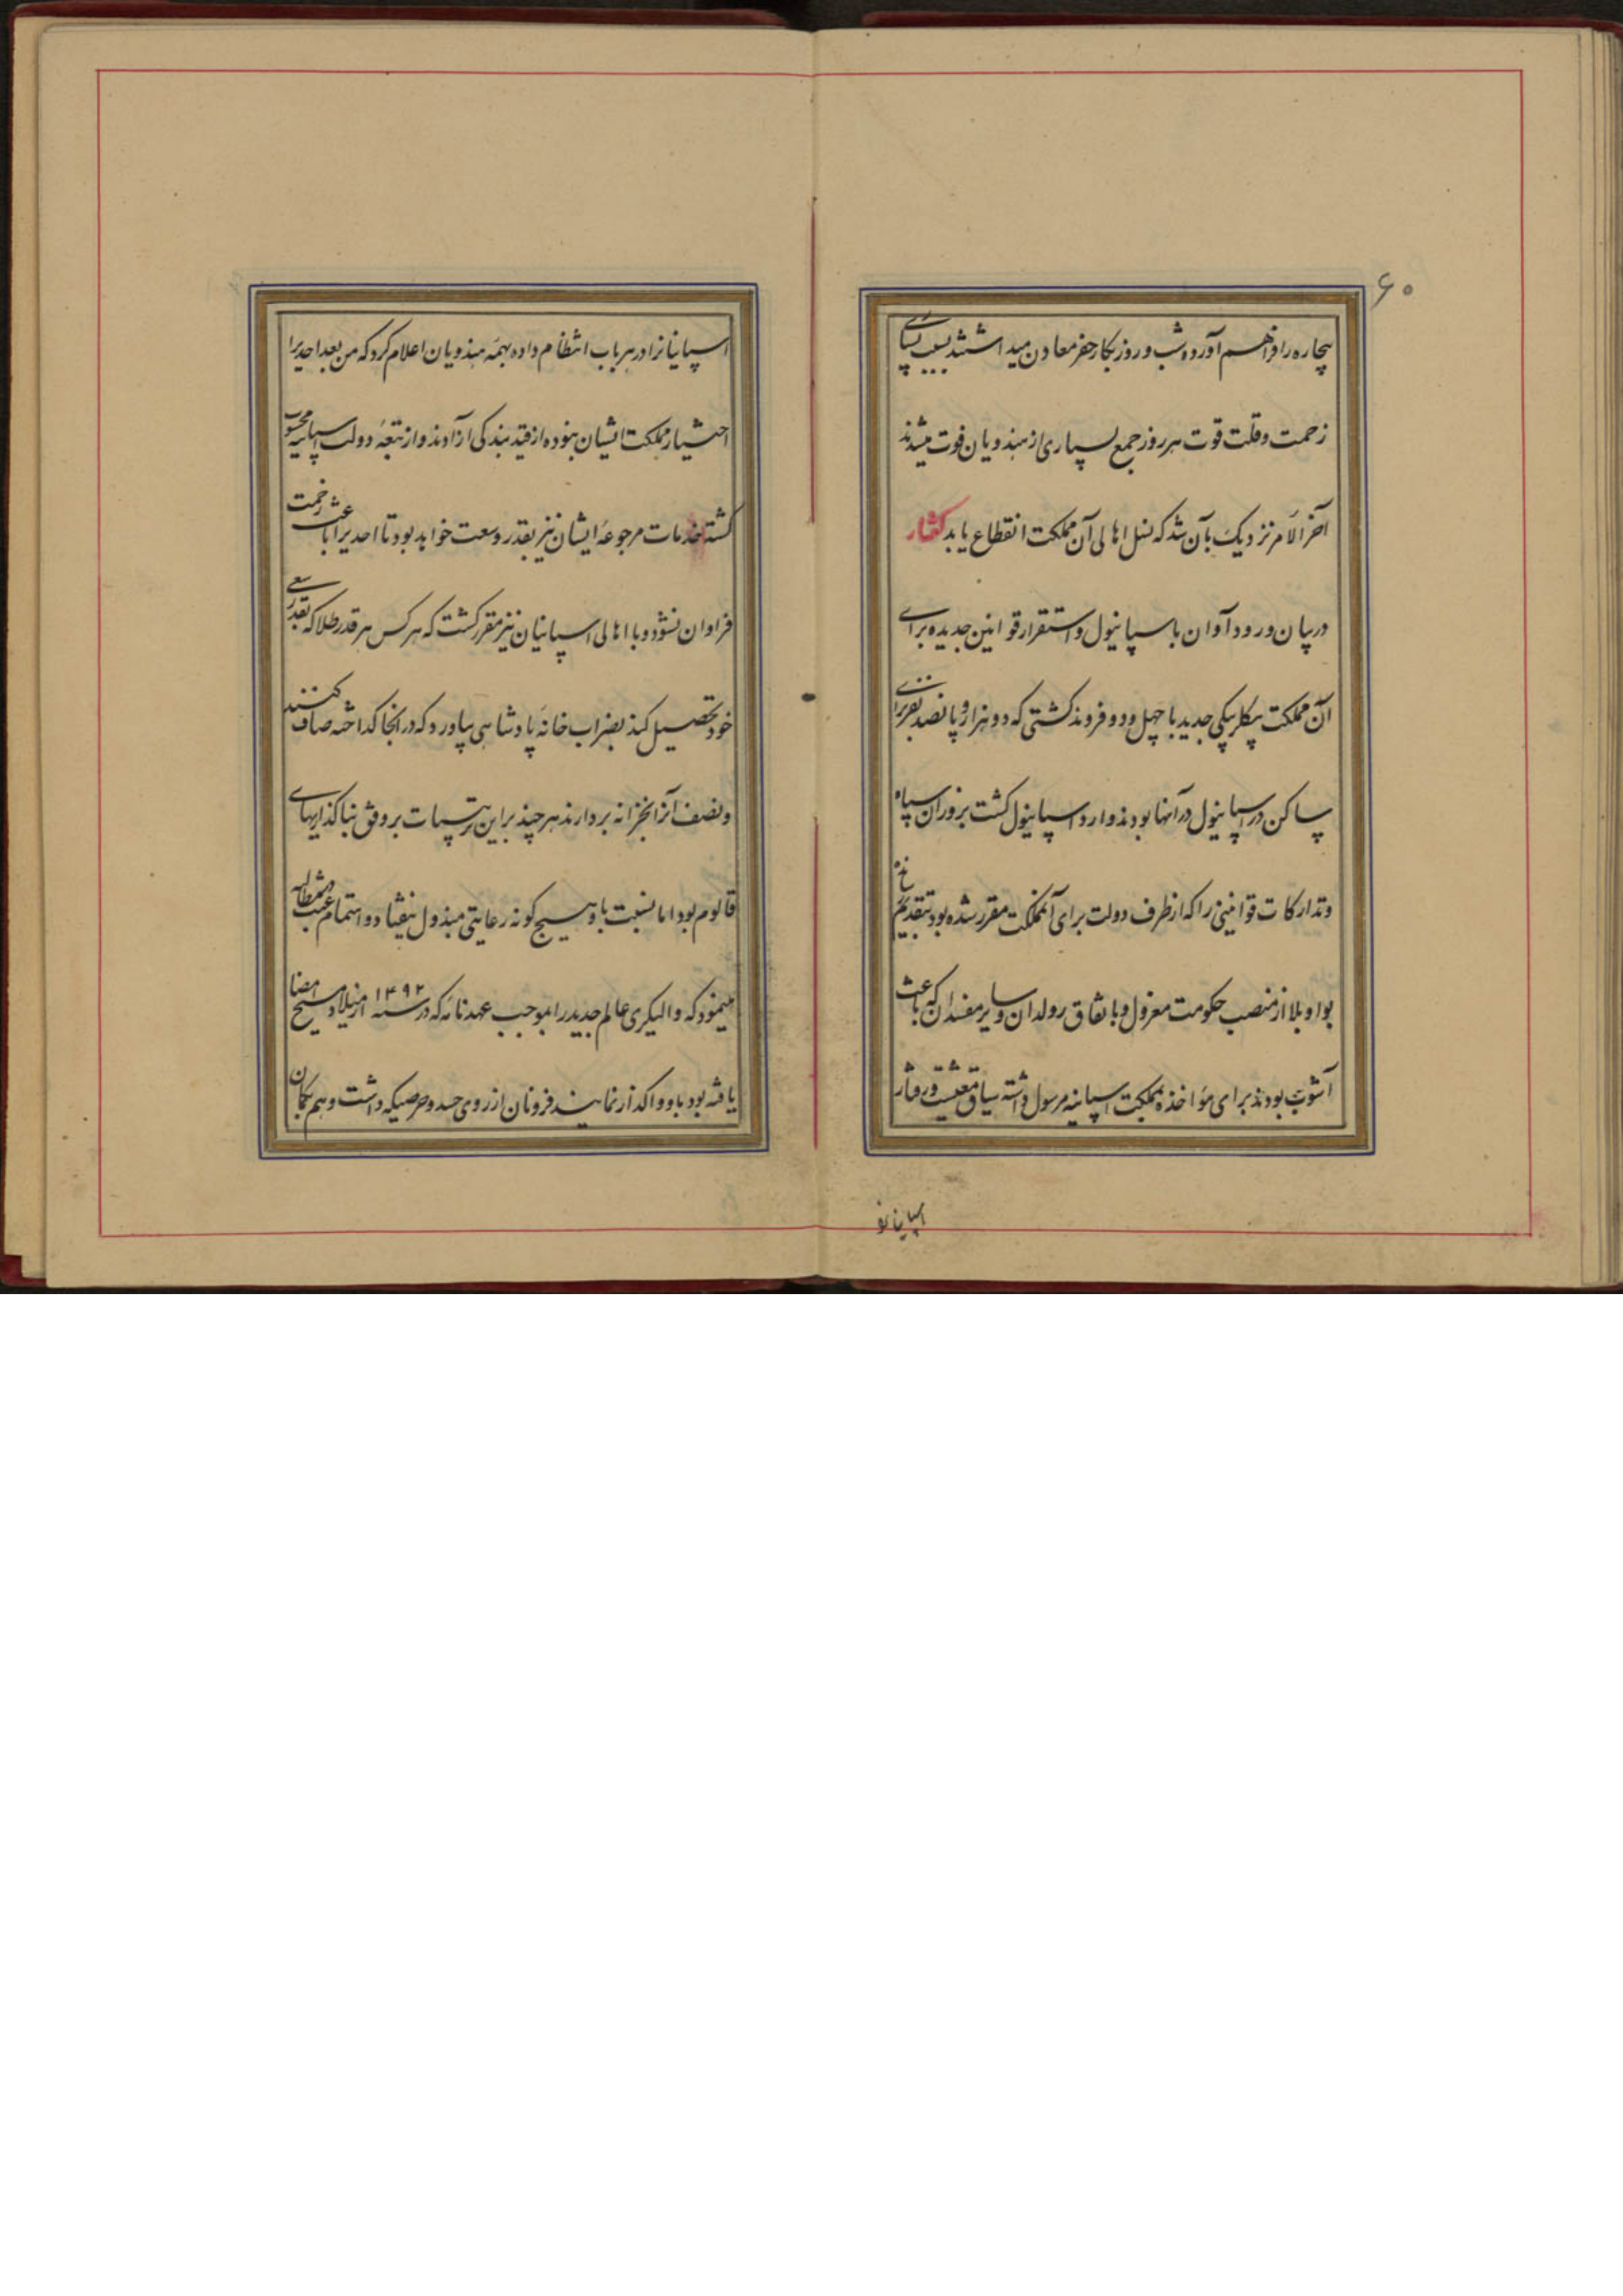 ۶۰
بیچاره را فراهم آورده شب و روز بکار حفر معادن میداشتند بسبب بسیاری
زحمت و قلت قوت هر روز جمع بسیاری از هندویان فوت میشدند
آخر الامر نزدیک بآن شد که نسل اهالی آن مملکت انقطاع یابد گفتار
در بیان ورود آوان باسپانیول و استقرار قوانین جدیده برای
آن مملکت بیکلربیکی جدید با چهل و دو فروند کشتی که دو هزار و پانصد نفر از
ساکن در اسپانیول در آنها بودند وارد اسپانیول کشت بزور آن سپاه
و تدارکات قوانینی را که از ظرف دولت برای آنمملکت مقرر شده بود بتقدیم
بواوبلا از منصب حکومت معزول و باتفاق رولدان و سایر مفسدان که باعث
آشوب بودند برای مؤاخذه بمملکت اسپانیه مرسول داشته سیاق معیشت و رفتار
اسپانیانرا
اسپانیانرا در هر باب انتظام داده بهمه هندویان اعلام کرد که من بعد احدیرا
اختیار مملکت ایشان نبوده از قید بندکی آزادند و از تبعه دولت اسپانیه محسوب
کشته خدمات مرجوعه ایشان نیز بقدر وسعت خواهد بود تا احدیرا باعث زحمت
فراوان نشود و با اهالی اسپانیان نیز مقرر کشت که هر کس هر قدر طلا که بقدر سعی
خود تحصیل کند بضراب خانه پادشاهی بیاورد که در آنجا کداخته صاف کنند
و نصف آنرا بخزانه بردارند هر چند براین ترتیبات بر وفق بنا کذاریهای
قالوم بود اما نسبت باو هیچ کونه رعایتی مبذول نیفتاد و اهتمام عبث مطالبه
مینمود که والیکری عالم جدید را بموجب عهدنامه که در سنه ۱۴۹۲ از میلاد مسیح امضا
یافته بود باو واکذار نمایند فرونان از روی حسد و حرصیکه داشت و هم بکمان